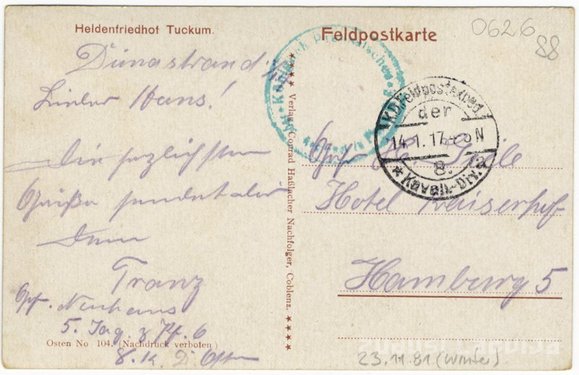 Heldenfriedhof Tuckum.
Feldpostkarte
0626
88
Dünastrand
Lieber Hans!
Die herzlichsten
Grüße sendet dir
Dein
Franz
Neuhaus
5. Jäg. z. Pf. 6
8. K. D. Osten
Osten No 104. (Nachdruck verboten)
**** Verlag Conrad Haßlacher Nachfolger, Coblenz. ****
K.D. Feldpostexped.
der
14.1.17. 5-6N
8.
* Kavall.-Div. a
Hotel Kaiserhof
Hamburg 5
23.11.81 (Winter)